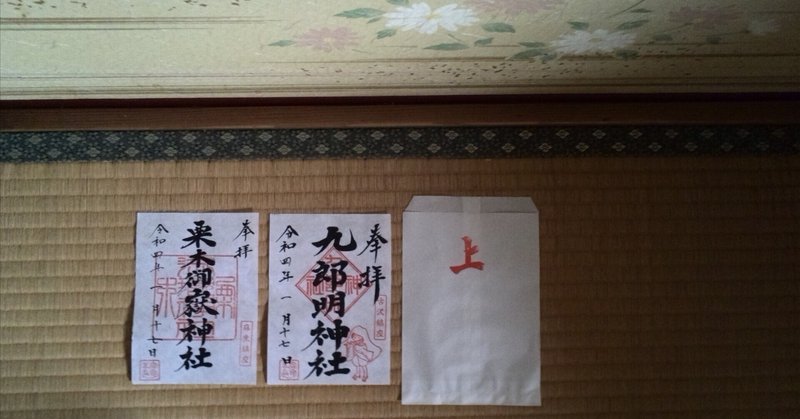 上
奉拝
古沢鎮座
九郎明神社
令和四年 一月十七日
奉拝
栗木御嶽神社
令和四年 一月十七日